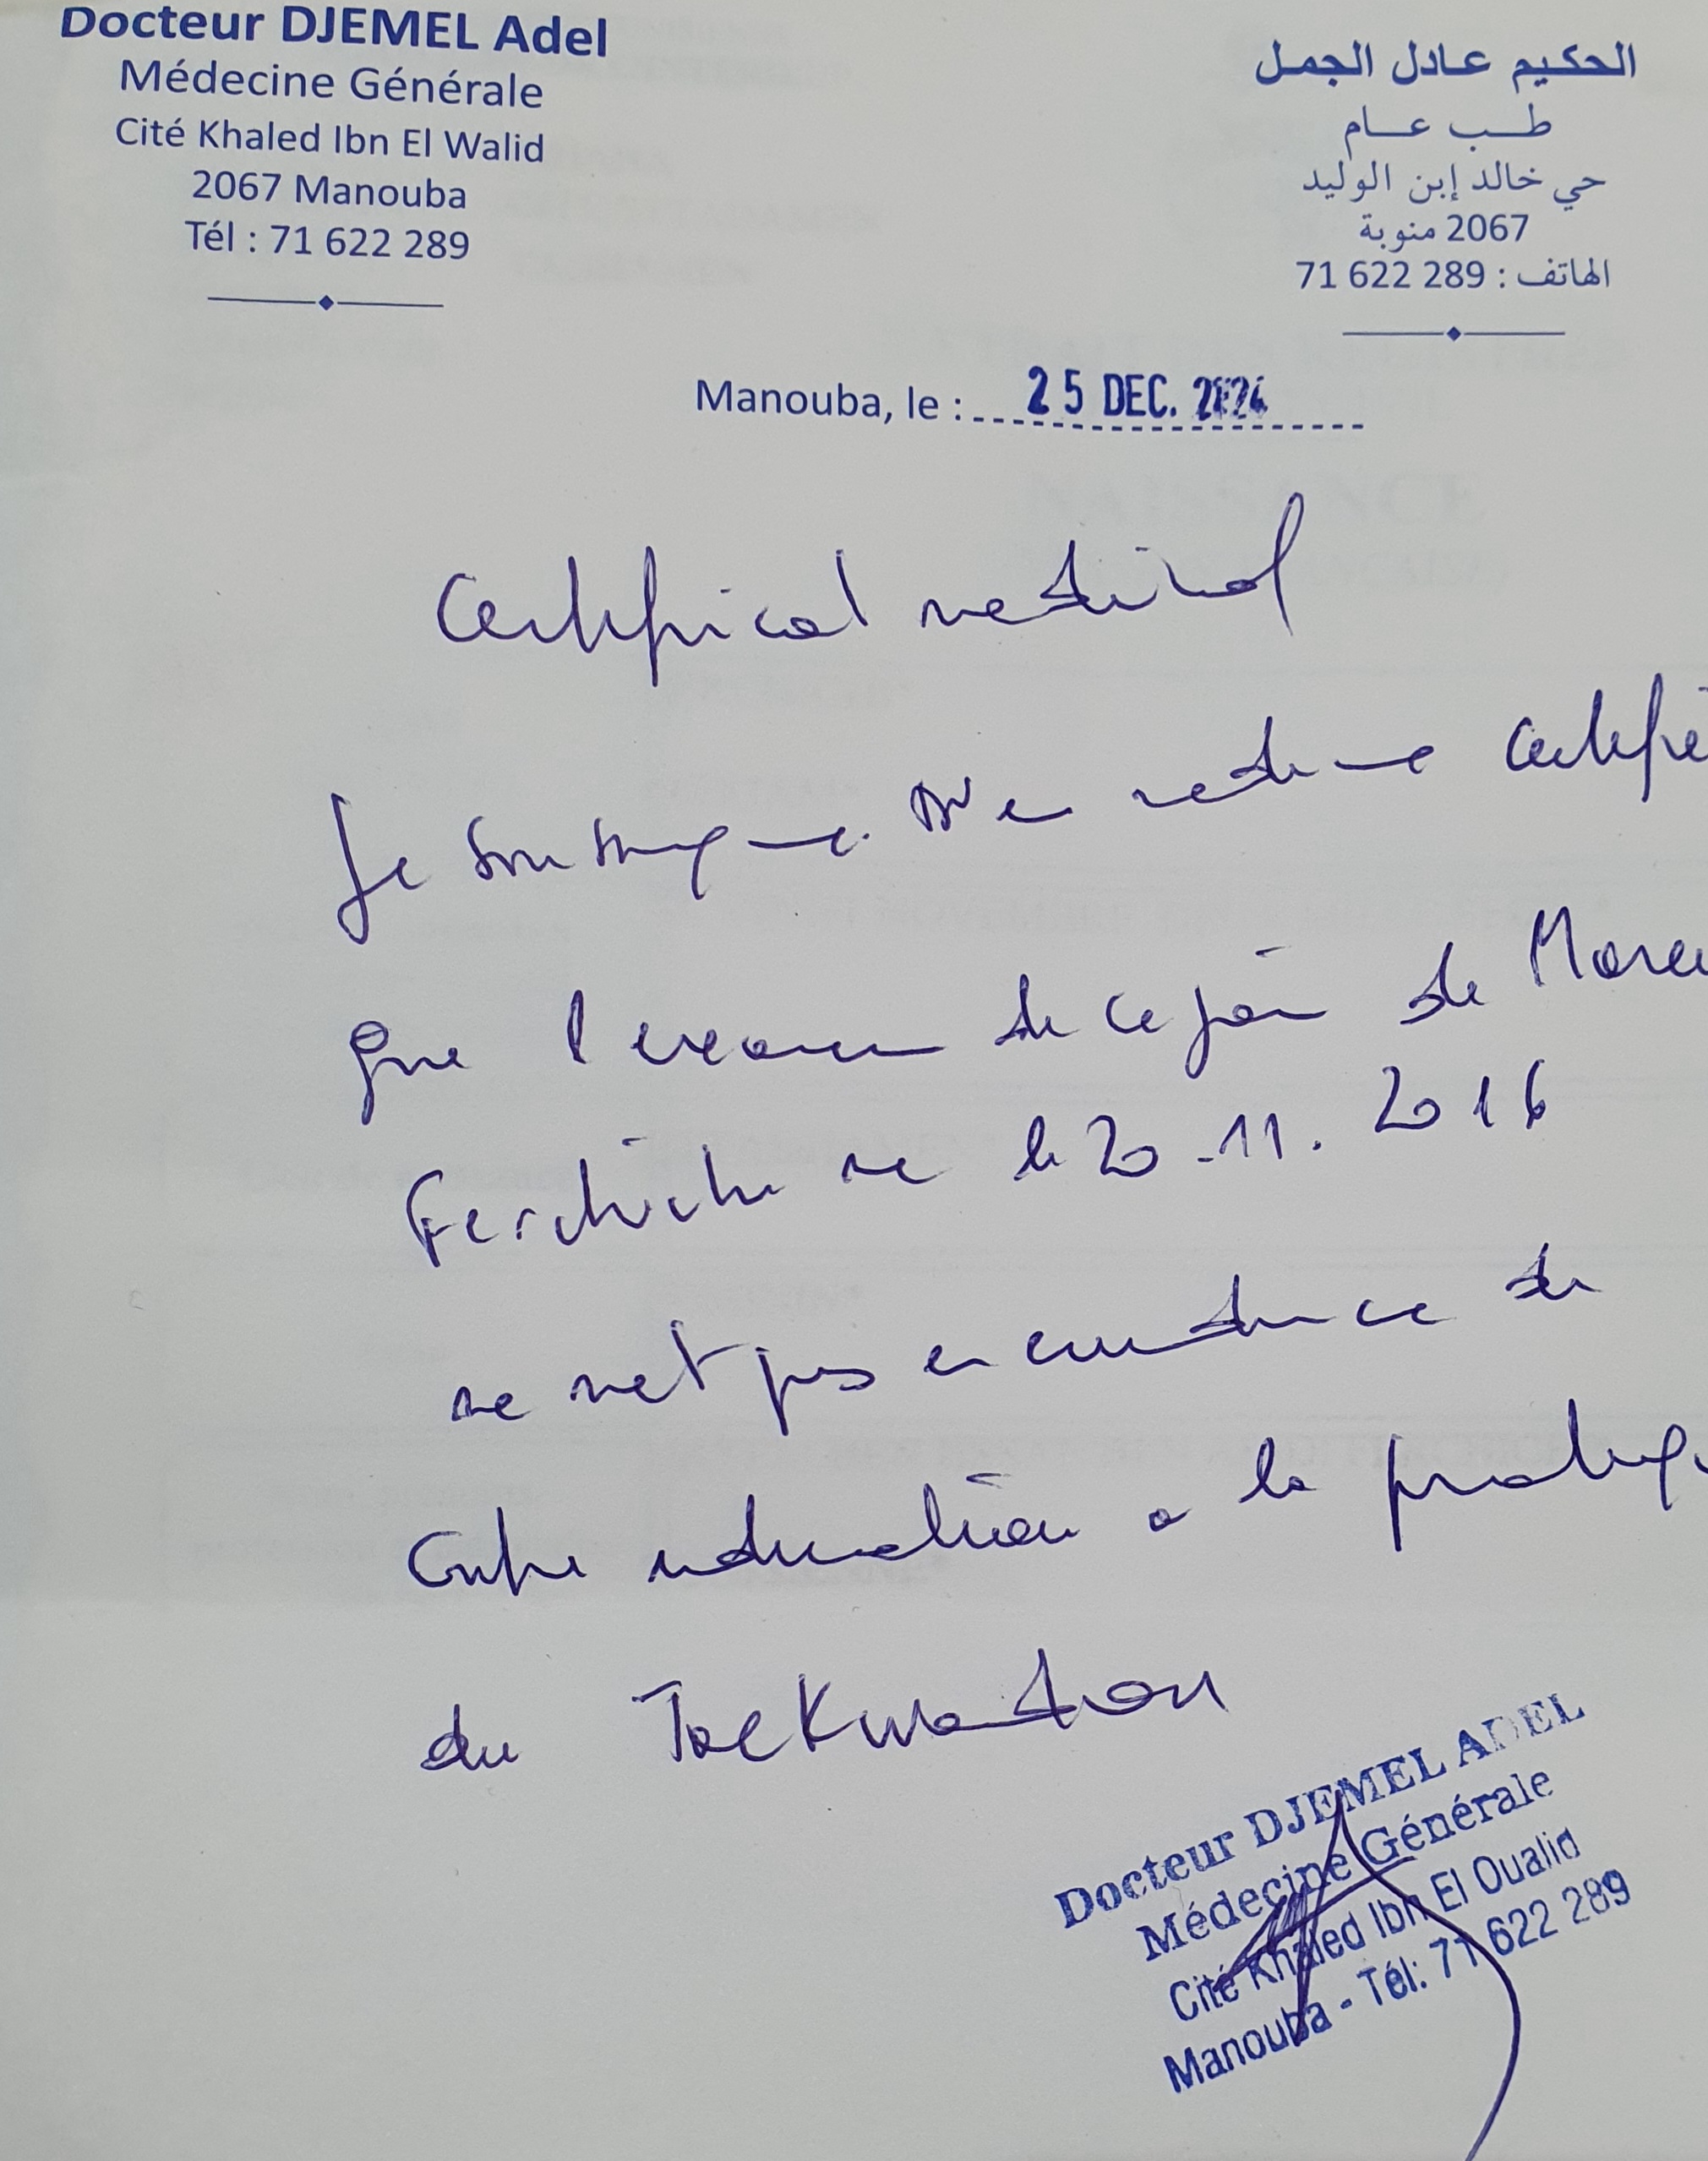 Docteur DJEMEL Adel
Médecine Générale
Cité Khaled Ibn El Walid
2067 Manouba
Tél : 71 622 289
الحكيم عادل الجمل
طب عام
حي خالد إبن الوليد
2067 منوبة
الهاتف : 71 622 289
Manouba, le : 25 DEC. 2024
Certificat medical
Je soussigne Dr en medecine certifie
que l'examen de ce jour de
Ferchichi ne le 20.11.2016
ne met pas en evidence de
contre indication a la
du Taekwondo
Docteur DJEMEL ADEL
Médecine Générale
Cité Khaled Ibn El Oualid
Manouba - Tél: 71 622 289